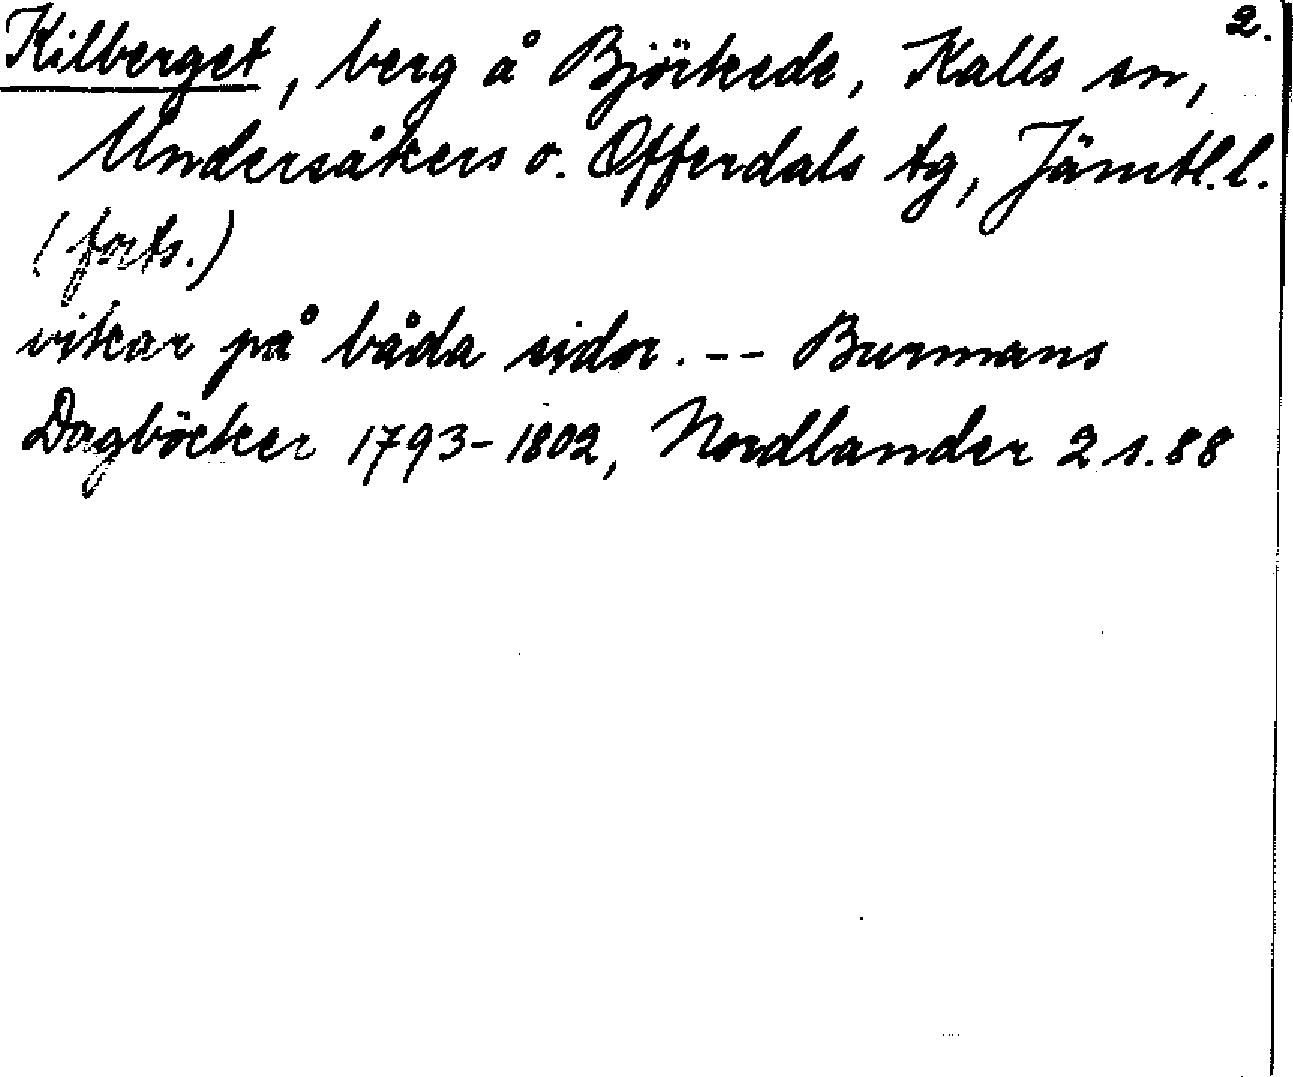 2.
Kilberget, berg å Björkede, Kalls sn,
Undersåkers o. Offerdals tg, Jämtl. l.
(forts.)
vikar på båda sidor. -- Burmans
Dagböcker 1793-1802, Nordlander 2 s. 88